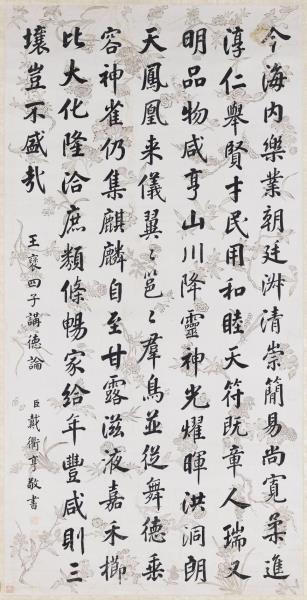 今海内樂業朝廷淑清崇簡易尚寬柔進
淳仁舉賢才民用和睦天符既章人瑞又
明品物咸亨山川降靈神光耀暉洪洞朗
天鳳凰来儀翼〻邕〻羣鳥並從舞德垂
容神雀仍集麒麟自至甘露滋液嘉禾櫛
比大化隆洽庶類條暢家給年豐咸則三
壤豈不盛哉
王襃四子講德論
臣戴衢亨敬書